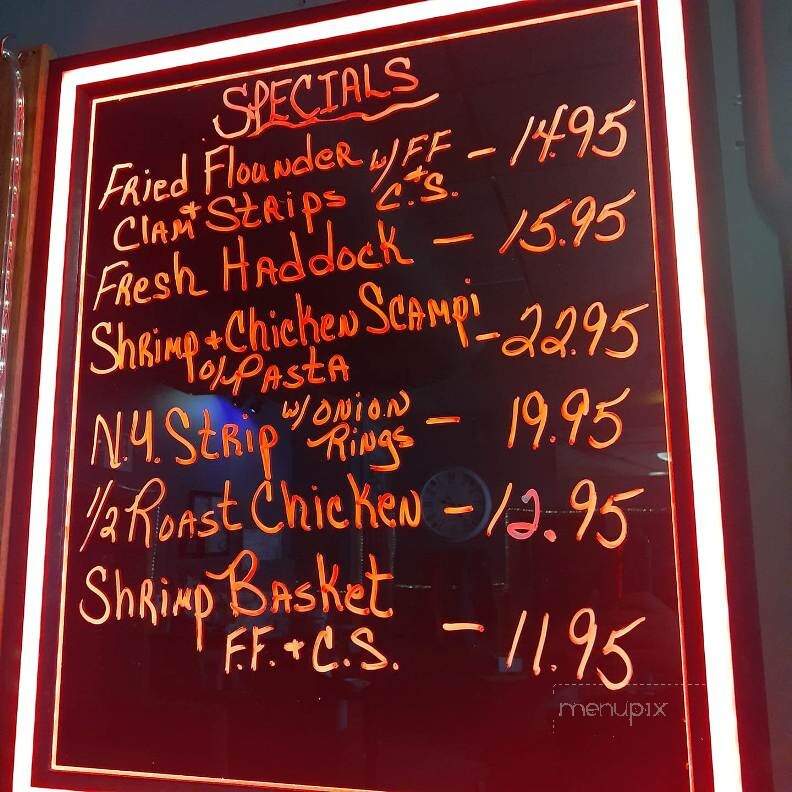 SPECIALS
FRied FlouNdeR w/ FF - 14.95
+ ClAM StRips + C.S.
FResh HAddock - 15.95
ShRimp + ChickeN ScAmpi - 22.95
o/ PAstA
N.Y. StRip w/ ONioN RiNgs - 19.95
1/2 RoAst ChickeN - 12.95
ShRimp BAsket - 11.95
F.F. + C.S.
menupix